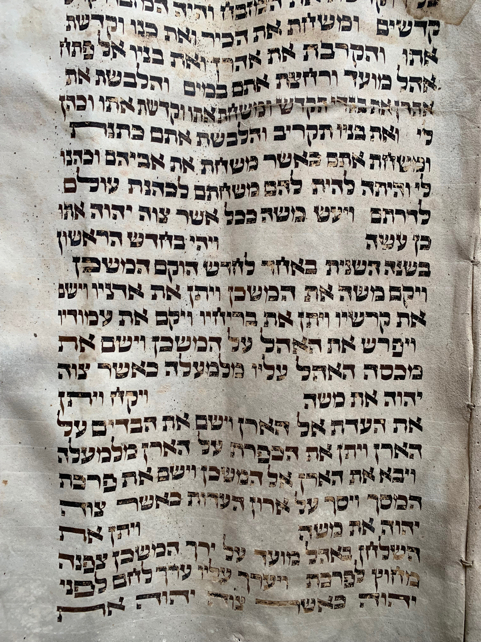 המזבח והיה המזבח
קדשים ומשחת את הכיר ואת כנו וקדשת
אתו והקרבת את אהרן ואת בניו אל פתח
אהל מועד ורחצת אתם במים והלבשת את
אהרן את בגדי הקדש ומשחת אתו וקדשת אתו וכהן
לי ואת בניו תקריב והלבשת אתם כתנת
ומשחת אתם כאשר משחת את אביהם וכהנו
לי והיתה להית להם משחתם לכהנת עולם
לדרתם ויעש משה ככל אשר צוה יהוה אתו
כן עשה ויהי בחדש הראשון
בשנה השנית באחד לחדש הוקם המשכן
ויקם משה את המשכן ויתן את אדניו וישם
את קרשיו ויתן את בריחיו ויקם את עמודיו
ויפרש את האהל על המשכן וישם את
מכסה האהל עליו מלמעלה כאשר צוה
יהוה את משה ויקח ויתן
את העדת אל הארן וישם את הבדים על
הארן ויתן את הכפרת על הארן מלמעלה
ויבא את הארן אל המשכן וישם את פרכת
המסך ויסך על ארון העדות כאשר צוה
יהוה את משה ויתן את
השלחן באהל מועד על ירך המשכן צפנה
מחוץ לפרכת ויערך עליו ערך לחם לפני
יהוה כאשר צוה יהוה את